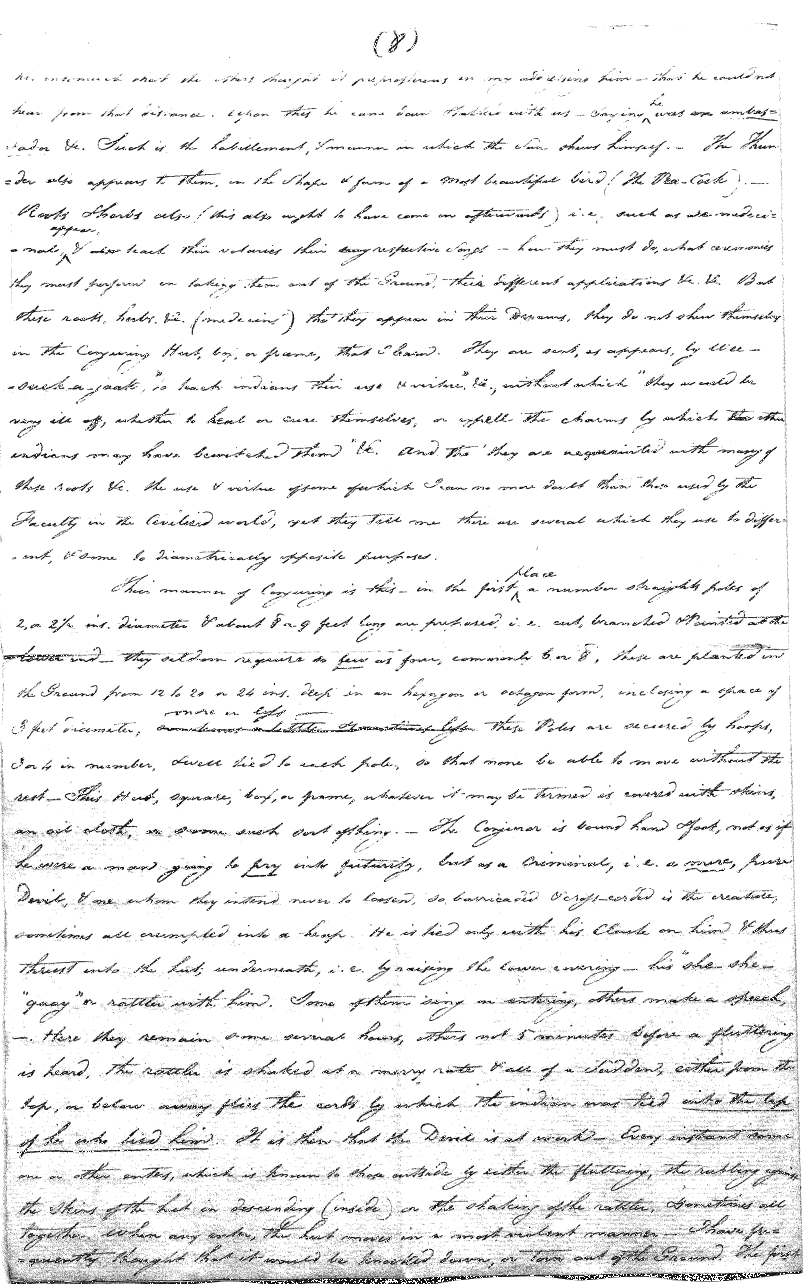 (8)
he insomuch that the others thought it preposterous in my addressing him — that he could not
hear from that distance. Upon this he came down & talked with us — saying he was an embas=
=sador &c. Such is the habillement, & manner in which the Sun shews himself. — The Thun=
=der also appears to them, in the Shape & form of a most beautiful bird (The Pea-Cock). —
Roots & herbs also (this also ought to have come in afterwards) i.e. such as are medeci=
=nal, appear, & teach their votaries their respective Songs — how they must do, what ceremonies
they must perform in taking them out of the Ground, their different applications &c. &c. But
these roots, herbs, &c. (medecins) tho' they appear in their Dreams, they do not shew themselves
in the Conjuring Hut, box, or frame, that I learn. They are sent, as appears, by Wee=
=suck-a-jaak, "to teach indians their use & virtue", &c., without which "they would be
very ill off, whether to heal or cure themselves, or expell the charms by which other
indians may have bewitched them" &c. And tho' they are acquainted with many of
these roots &c. the use & virtue of some of which I can no more doubt than those used by the
Faculty in the Civilised world, yet they tell me there are several which they use to differ=
=ent, & some to diametrically opposite purposes.
Their manner of Conjuring is this — in the first place a number straights poles of
2, or 2½ ins. diameter & about 8 or 9 feet long are prepared, i.e. cut, branched & Pointed at the
lower end — they seldom require so few as four, commonly 6 or 8, these are planted in
the Ground from 12 to 20 or 24 ins. deep in an hexagon or octagon form, inclosing a space of
3 feet diameter, more or less — these Poles are secured by hoops,
3 or 4 in number, & well tied to each pole, so that none be able to move without the
rest — This Hut, square, box, or frame, whatever it may be termed is covered with skins,
an oil cloth, or some such sort of thing. — The Conjuror is bound hand & foot, not as if
he were a man going to pry into futurity, but as a Criminal, i.e. a mere, pure
Devil, & one whom they intend never to loosen, so barricaded & cross-corded is the creature,
sometimes all crumpled into a heap. He is tied only with his Clout on him & thus
thrust into the hut, underneath, i.e. by raising the lower covering — his "she-she-
"quay" or rattler with him. Some of them sing on entering, others make a speech,
—. Here they remain some several hours, others not 5 minutes before a fluttering
is heard. The rattler is shaked at a merry rate & all of a sudden, either from the
top, or below away flies the cords by which the indian was tied into the lap
of he who tied him. It is then that the Devil is at work — Every instant some
one or other enters, which is known to those outside by either the fluttering, the rubbing against
the skins of the hut in descending (inside) or the shaking of the rattler, & sometimes all
together. When any enter, the hut moves in a most violent manner — I have fre=
=quently thought that it would be knocked down, or torn out of the Ground. The first